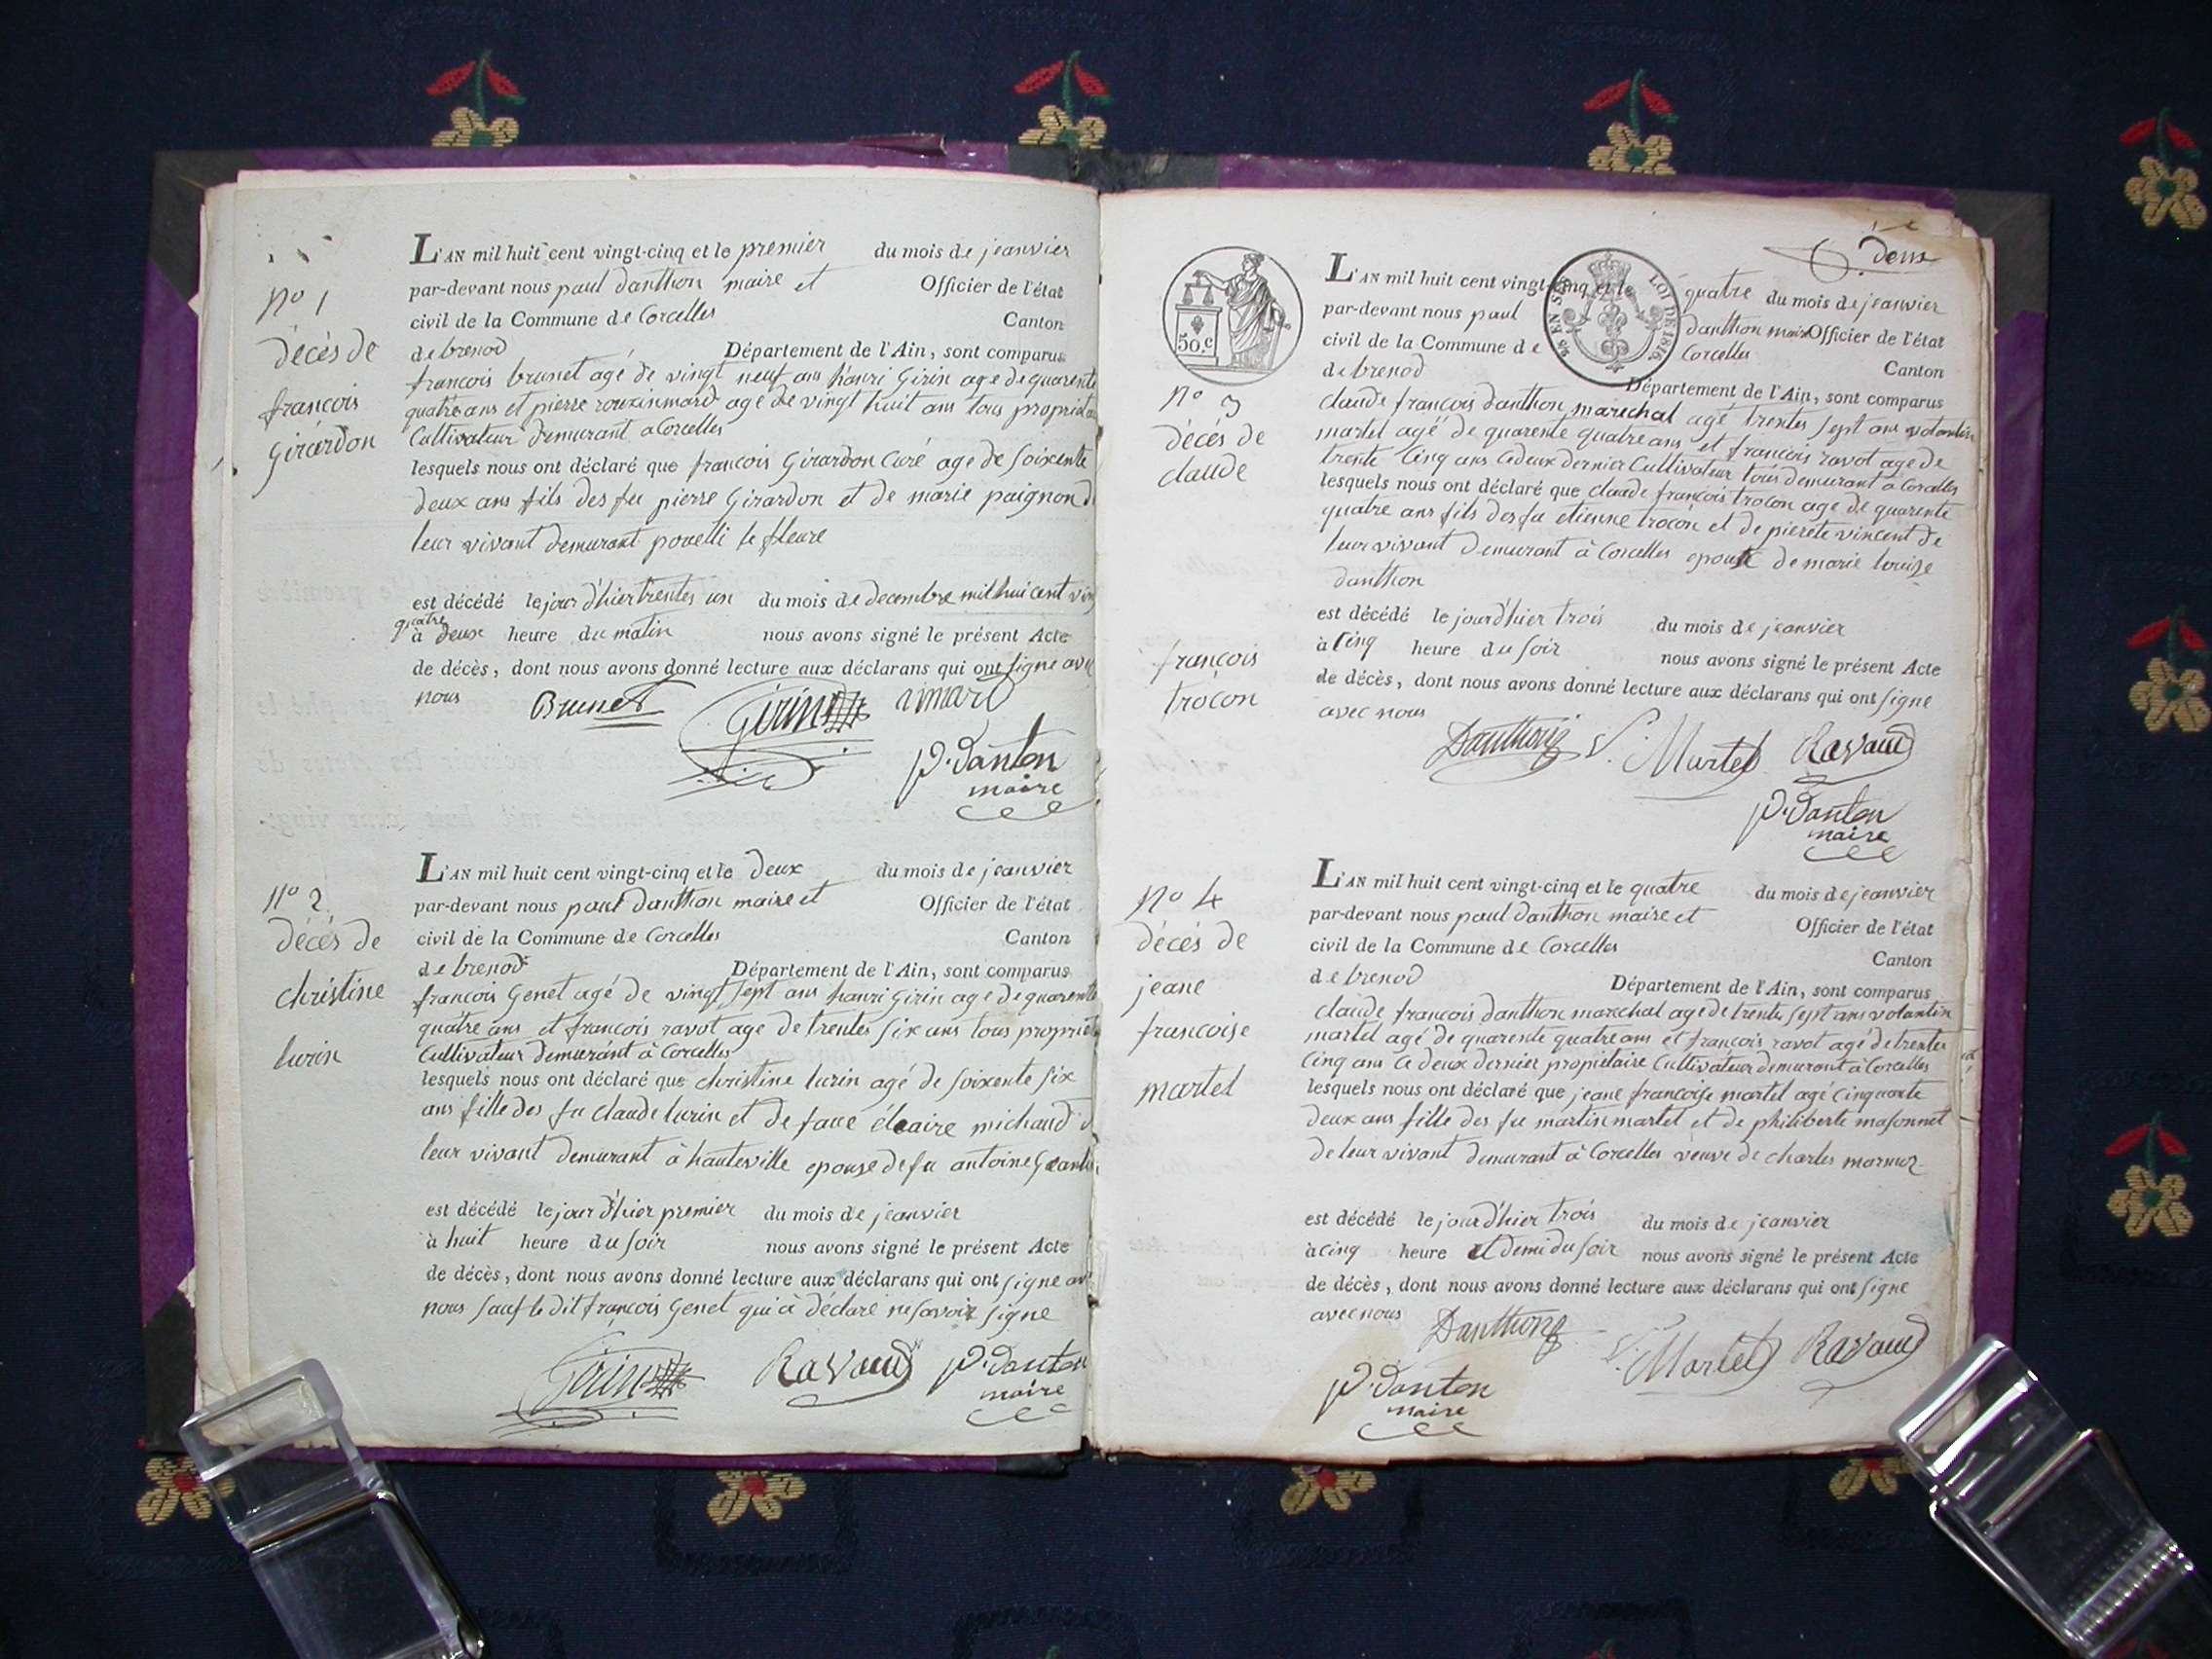 L'AN mil huit cent vingt-cinq et le premier du mois de jeanvier
par-devant nous paul danthon maire et Officier de l'état
civil de la Commune de Corcelles Canton
de brenod Département de l'Ain, sont comparus
françois brunet agé de vingt neuf ans hanri Girin age de quarente
quatre ans et pierre agé de vingt huit ans tous
Cultivateur demurant a Corcelles
lesquels nous ont déclaré que françois Girardon Curé age de soixente
deux ans fils des feu pierre Girardon et de marie paignon
leur vivant demurant
est décédé le jour d'hier trentes un du mois de decembre mil huit cent
quatre
à deux heure du matin nous avons signé le présent Acte
de décès, dont nous avons donné lecture aux déclarans qui ont signe avec
nous
No 1
décès de
françois
Girardon
Brunet Girin
P. Danton
maire
L'AN mil huit cent vingt-cinq et le deux du mois de jeanvier
par-devant nous paul danthon maire et Officier de l'état
civil de la Commune de Corcelles Canton
de brenod Département de l'Ain, sont comparus
françois Genet agé de vingt sept ans hanri Girin age de quarente
quatre ans et françois ravot age de trentes six ans tous
Cultivateur demurant à Corcelles
lesquels nous ont déclaré que christine lurin agé de soixente six
ans fille des fu claude lurin et de michaud
leur vivant demurant à hauteville epouse de fu antoine
est décédé le jour d'hier premier du mois de jeanvier
à huit heure du soir nous avons signé le présent Acte
de décès, dont nous avons donné lecture aux déclarans qui ont signe
nous sauf le dit françois Genet qui à déclaré ne savoir signe
No 2
décés de
christine
lurin
Girin Ravaud P. Danton
maire
deux
50.c
EN SUS LOI DE 1816.
L'AN mil huit cent vingt-cinq et le quatre du mois de jeanvier
par-devant nous paul danthon maire Officier de l'état
civil de la Commune de Corcelles Canton
de brenod Département de l'Ain, sont comparus
claude françois danthon marechal agé trentes sept ans volantin
martel agé de quarente quatre ans et françois ravot age de
trente Cinq ans Ce deux dernier Cultivateur tous demurant à Corcelles
lesquels nous ont déclaré que claude françois trocon age de quarente
quatre ans fils des fu etienne trocon et de pierete vincent de
leur vivant demurant à Corcelles epouse de marie louise
danthon
est décédé le jour d'hier trois du mois de jeanvier
à Cinq heure du soir nous avons signé le présent Acte
de décès, dont nous avons donné lecture aux déclarans qui ont signe
avec nous
No 3
décés de
claude
françois
trocon
Danthon V. Martel Ravaud
P. Danton
maire
L'AN mil huit cent vingt-cinq et le quatre du mois de jeanvier
par-devant nous paul danthon maire et Officier de l'état
civil de la Commune de Corcelles Canton
de brenod Département de l'Ain, sont comparus
claude francois danthon marechal age de trentes sept ans volantin
martel agé de quarente quatre ans et françois ravot agé de trentes
Cinq ans Ce deux dernier propietaire Cultivateur demurant à Corcelles
lesquels nous ont déclaré que jeane francoise martel agé Cinquante
deux ans fille des fu martin martel et de philiberte masonnet
de leur vivant demurant à Corcelles veuve de charles
est décédé le jour d'hier trois du mois de jeanvier
à cinq heure et demi du soir nous avons signé le présent Acte
de décès, dont nous avons donné lecture aux déclarans qui ont signe
avec nous
No 4
décés de
jeane
francoise
martel
Danthon V. Martel Ravaud
P. Danton
maire